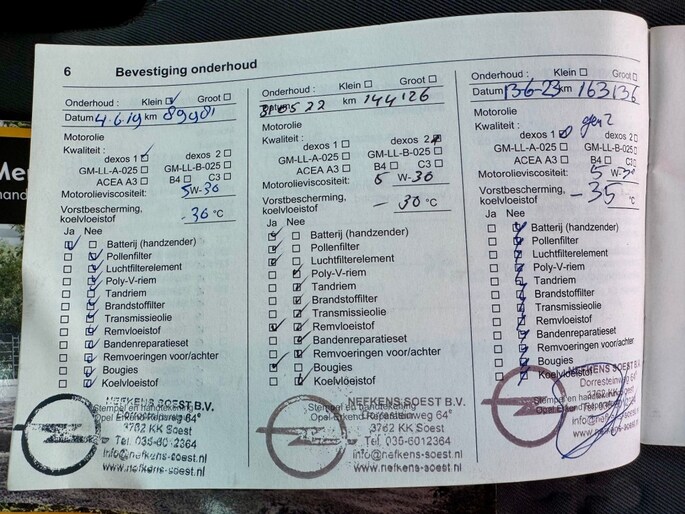 6 Bevestiging onderhoud
Onderhoud : Klein Groot
Datum 4.6.19 km 89981
Motorolie
Kwaliteit :
dexos 1 dexos 2
GM-LL-A-025 GM-LL-B-025
ACEA A3 B4 C3
Motorolieviscositeit: 5W-30
Vorstbescherming,
koelvloeistof -36 °C
Ja Nee
Batterij (handzender)
Pollenfilter
Luchtfilterelement
Poly-V-riem
Tandriem
Brandstoffilter
Transmissieolie
Remvloeistof
Bandenreparatieset
Remvoeringen voor/achter
Bougies
Koelvloeistof
NEFKENS SOEST B.V.
Stempel en handtekening
Opel Erkend Reparateur
Dorresteinweg 64a
3762 KK Soest
Tel. 035-6012364
info@nefkens-soest.nl
www.nefkens-soest.nl
Onderhoud : Klein Groot
Datum 22 km 144126
Motorolie
Kwaliteit :
dexos 1 dexos 2
GM-LL-A-025 GM-LL-B-025
ACEA A3 B4 C3
Motorolieviscositeit: 5 W-30
Vorstbescherming,
koelvloeistof - 30 °C
Ja Nee
Batterij (handzender)
Pollenfilter
Luchtfilterelement
Poly-V-riem
Tandriem
Brandstoffilter
Transmissieolie
Remvloeistof
Bandenreparatieset
Remvoeringen voor/achter
Bougies
Koelvloeistof
NEFKENS SOEST B.V.
Stempel en handtekening
Opel Erkend Reparateur
Dorresteinweg 64a
3762 KK Soest
Tel. 035-6012364
info@nefkens-soest.nl
www.nefkens-soest.nl
Onderhoud : Klein Groot
Datum 13-6-23 km 163136
Motorolie
Kwaliteit : gen2
dexos 1 dexos 2
GM-LL-A-025 GM-LL-B-025
ACEA A3 B4 C3
Motorolieviscositeit: 5 W-30
Vorstbescherming,
koelvloeistof -35 °C
Ja Nee
Batterij (handzender)
Pollenfilter
Luchtfilterelement
Poly-V-riem
Tandriem
Brandstoffilter
Transmissieolie
Remvloeistof
Bandenreparatieset
Remvoeringen voor/achter
Bougies
Koelvloeistof
NEFKENS SOEST B.V.
Dorresteinweg 64a
Stempel en handtekening
3762 KK Soest
Opel Erkend Reparateur
info@nefkens-soest.nl
www.nefkens-soest.nl